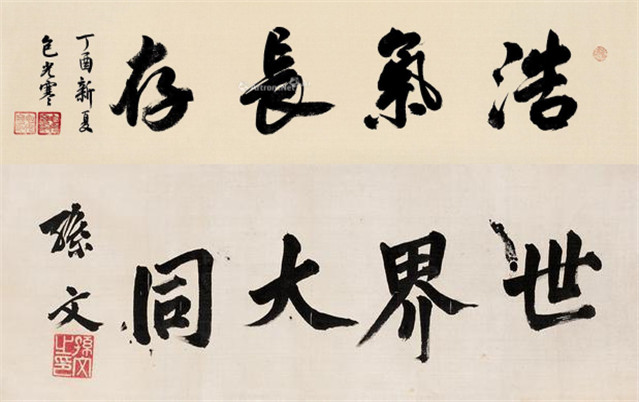 浩氣長存
丁酉新夏
包光寒
世界大同
孫文
孫文之印